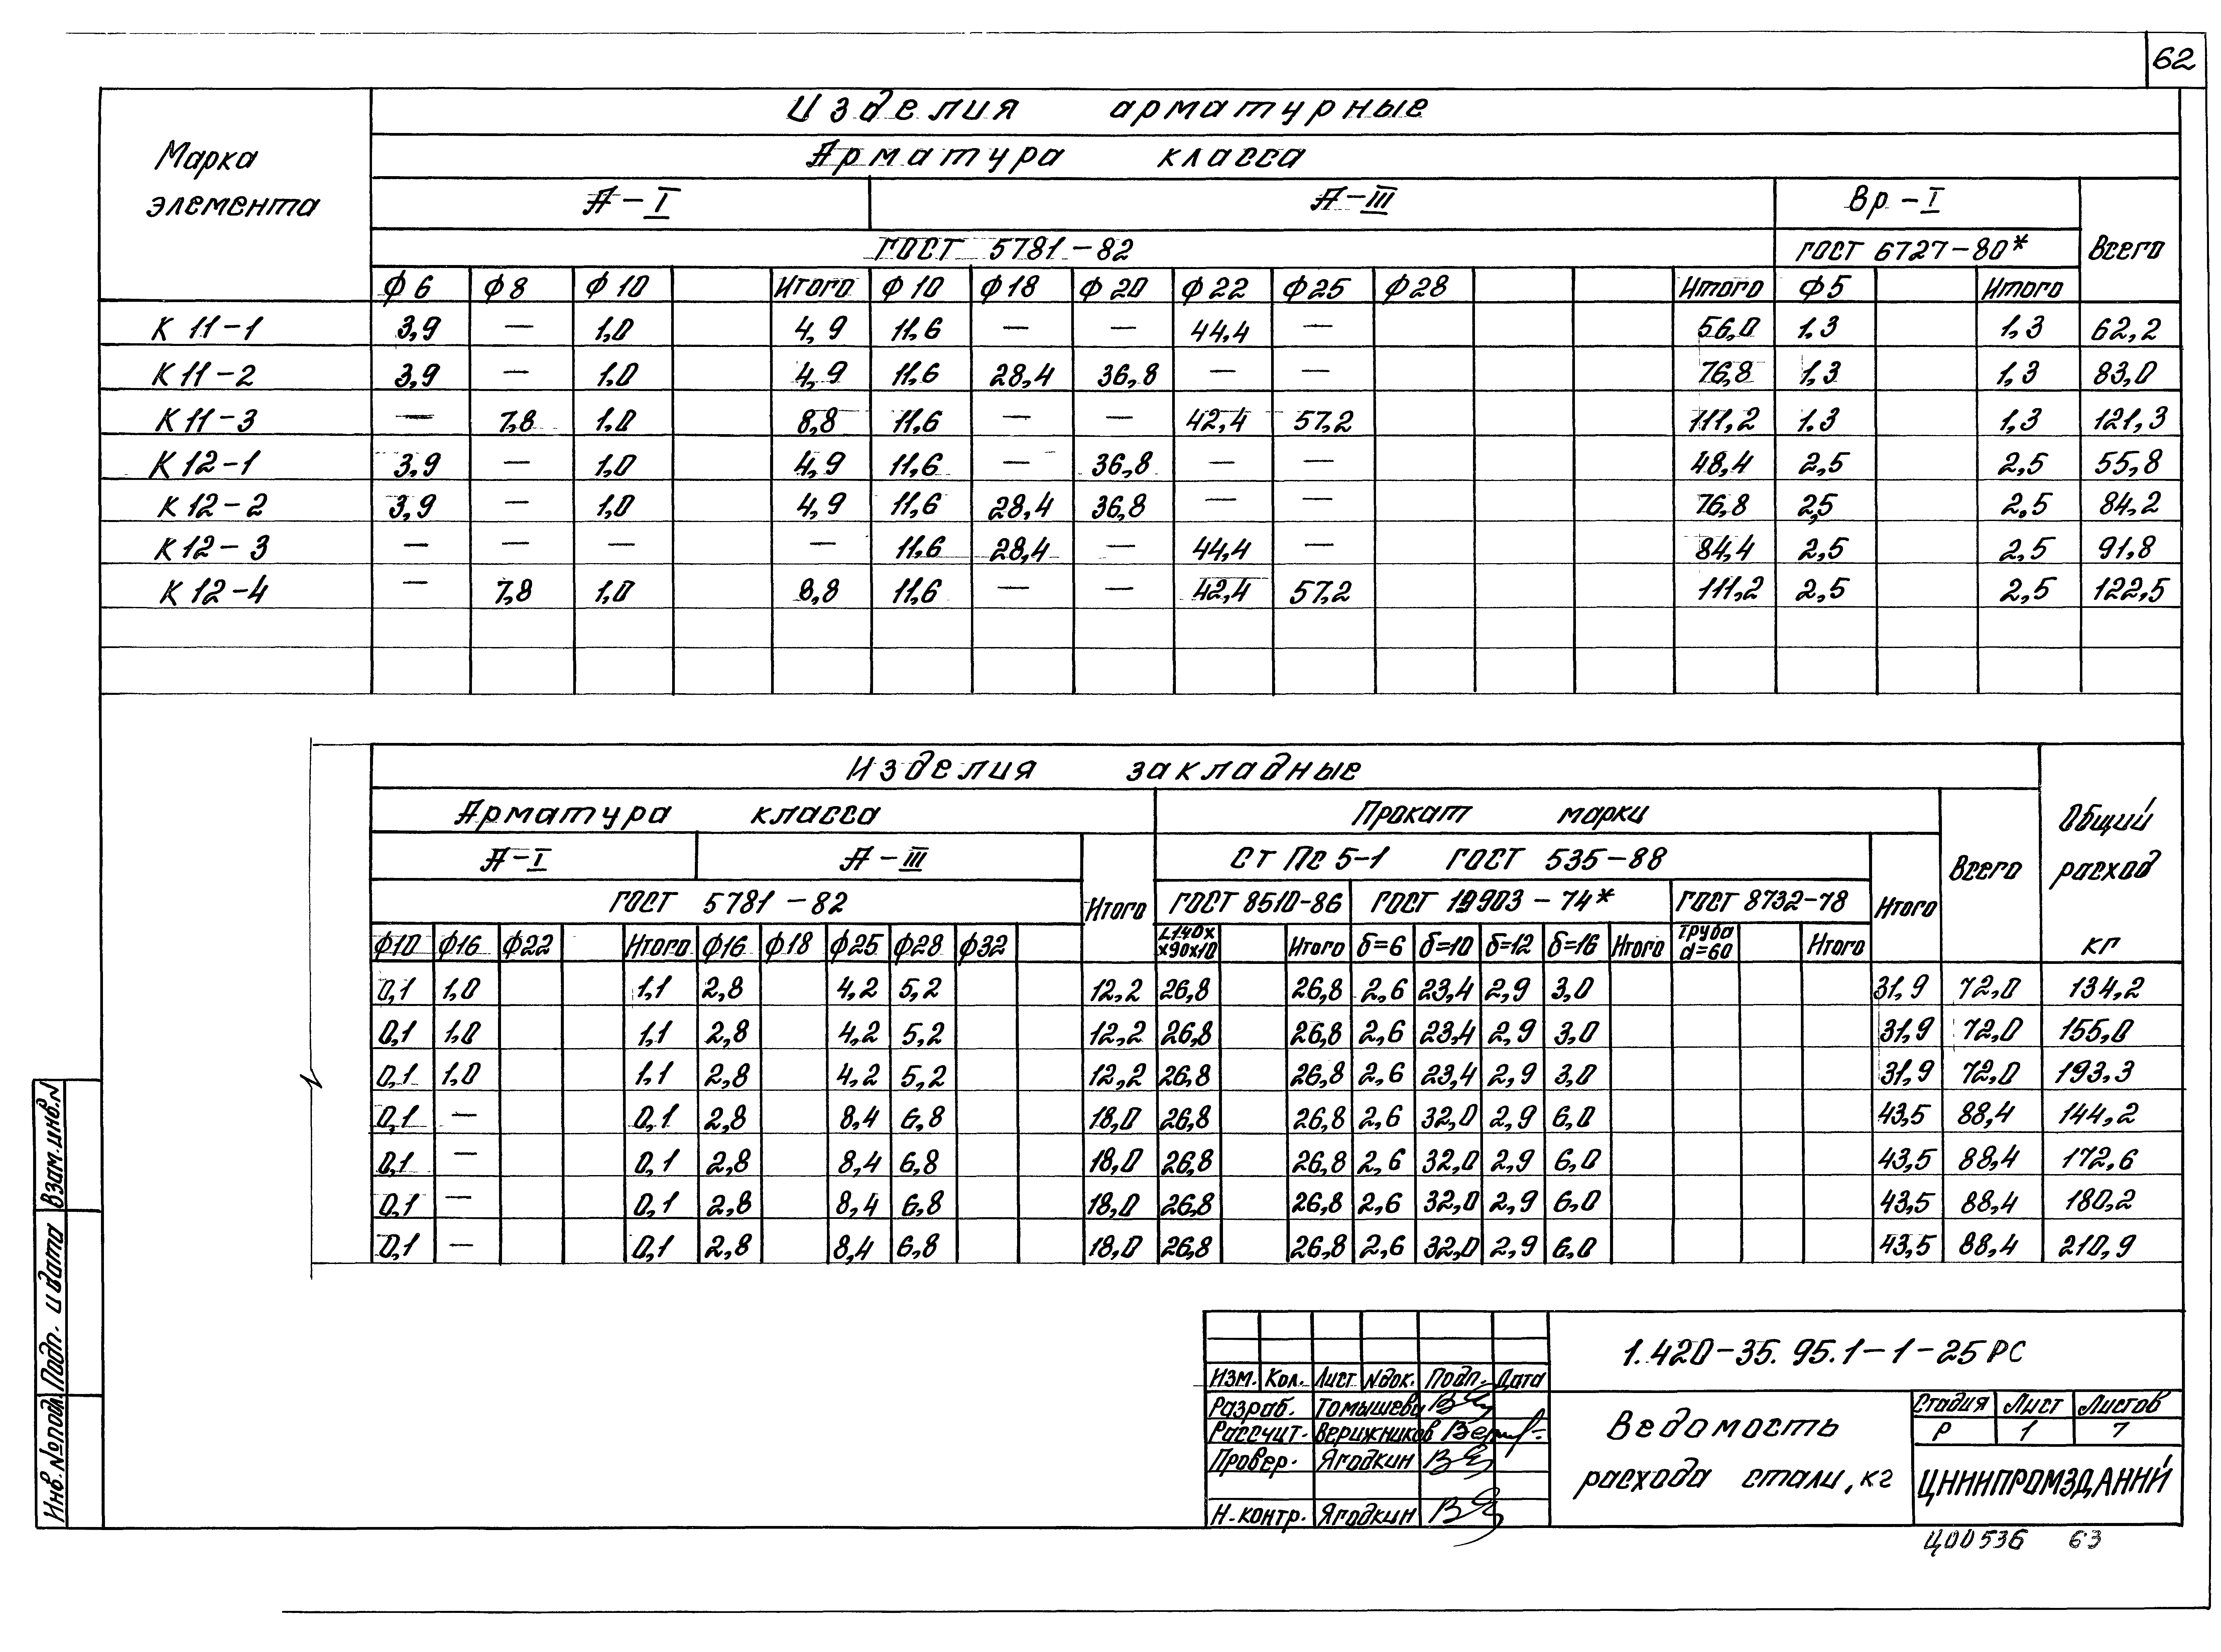 62
Изделия арматурные
Марка элемента
Арматура класса
А-I А-III Вр-I
ГОСТ 5781-82 ГОСТ 6727-80* Всего
ф6 ф8 ф10 Итого ф10 ф18 ф20 ф22 ф25 ф28 Итого ф5 Итого
К 11-1 3,9 — 1,0 4,9 11,6 — — 44,4 — 56,0 1.3 1,3 62,2
К 11-2 3,9 — 1,0 4,9 11,6 28,4 36,8 — — 76,8 1,3 1,3 83,0
К 11-3 — 7,8 1,0 8,8 11,6 — — 42,4 57,2 111,2 1.3 1,3 121,3
К 12-1 3,9 — 1,0 4,9 11,6 — 36,8 — — 48,4 2,5 2,5 55,8
К 12-2 3,9 — 1,0 4,9 11,6 28,4 36,8 — — 76,8 2,5 2.5 84,2
К 12-3 — — — — 11,6 28,4 — 44,4 — 84,4 2,5 2,5 91,8
К 12-4 — 7,8 1,0 8,8 11,6 — — 42,4 57,2 111,2 2,5 2,5 122,5
Изделия закладные
Арматура класса Прокат марки Общий расход кг
А-I А-III Ст Пс 5-1 ГОСТ 535-88 Всего
ГОСТ 5781-82 Итого ГОСТ 8510-86 ГОСТ 19903-74* ГОСТ 8732-78 Итого
ф10 ф16 ф22 Итого ф16 ф18 ф25 ф28 ф32 L140х х90х10 Итого δ=6 δ=10 δ=12 δ=16 Итого Труба d=60 Итого
0,1 1,0 1,1 2,8 4,2 5,2 12,2 26,8 26,8 2,6 23,4 2,9 3,0 31,9 72,0 134,2
0,1 1,0 1,1 2,8 4,2 5,2 12,2 26,8 26,8 2,6 23,4 2,9 3,0 31,9 72,0 155,0
0,1 1,0 1,1 2,8 4,2 5,2 12,2 26,8 26,8 2,6 23,4 2,9 3,0 31,9 72,0 193,3
0,1 — 0,1 2,8 8,4 6,8 18,0 26,8 26,8 2,6 32,0 2,9 6,0 43,5 88,4 144,2
0,1 — 0,1 2,8 8,4 6,8 18,0 26,8 26,8 2,6 32,0 2,9 6,0 43,5 88,4 172,6
0,1 — 0,1 2,8 8,4 6,8 18,0 26,8 26,8 2,6 32,0 2,9 6,0 43,5 88,4 180,2
0,1 — 0,1 2,8 8,4 6,8 18,0 26,8 26,8 2,6 32,0 2,9 6,0 43,5 88,4 210,9
Взам.инв.N
Подп. и дата
Инв.№подл.
1.420-35.95.1-1-25РС
Изм. Кол. Лист Nдок. Подп. Дата
Разраб. Томышева
Рассчит. Верижников
Провер. Ягодкин
Н-контр. Ягодкин
Ведомость
расхода стали, кг
Стадия Лист Листов
Р 1 7
ЦНИИПРОМЗДАНИЙ
Ц00536 63